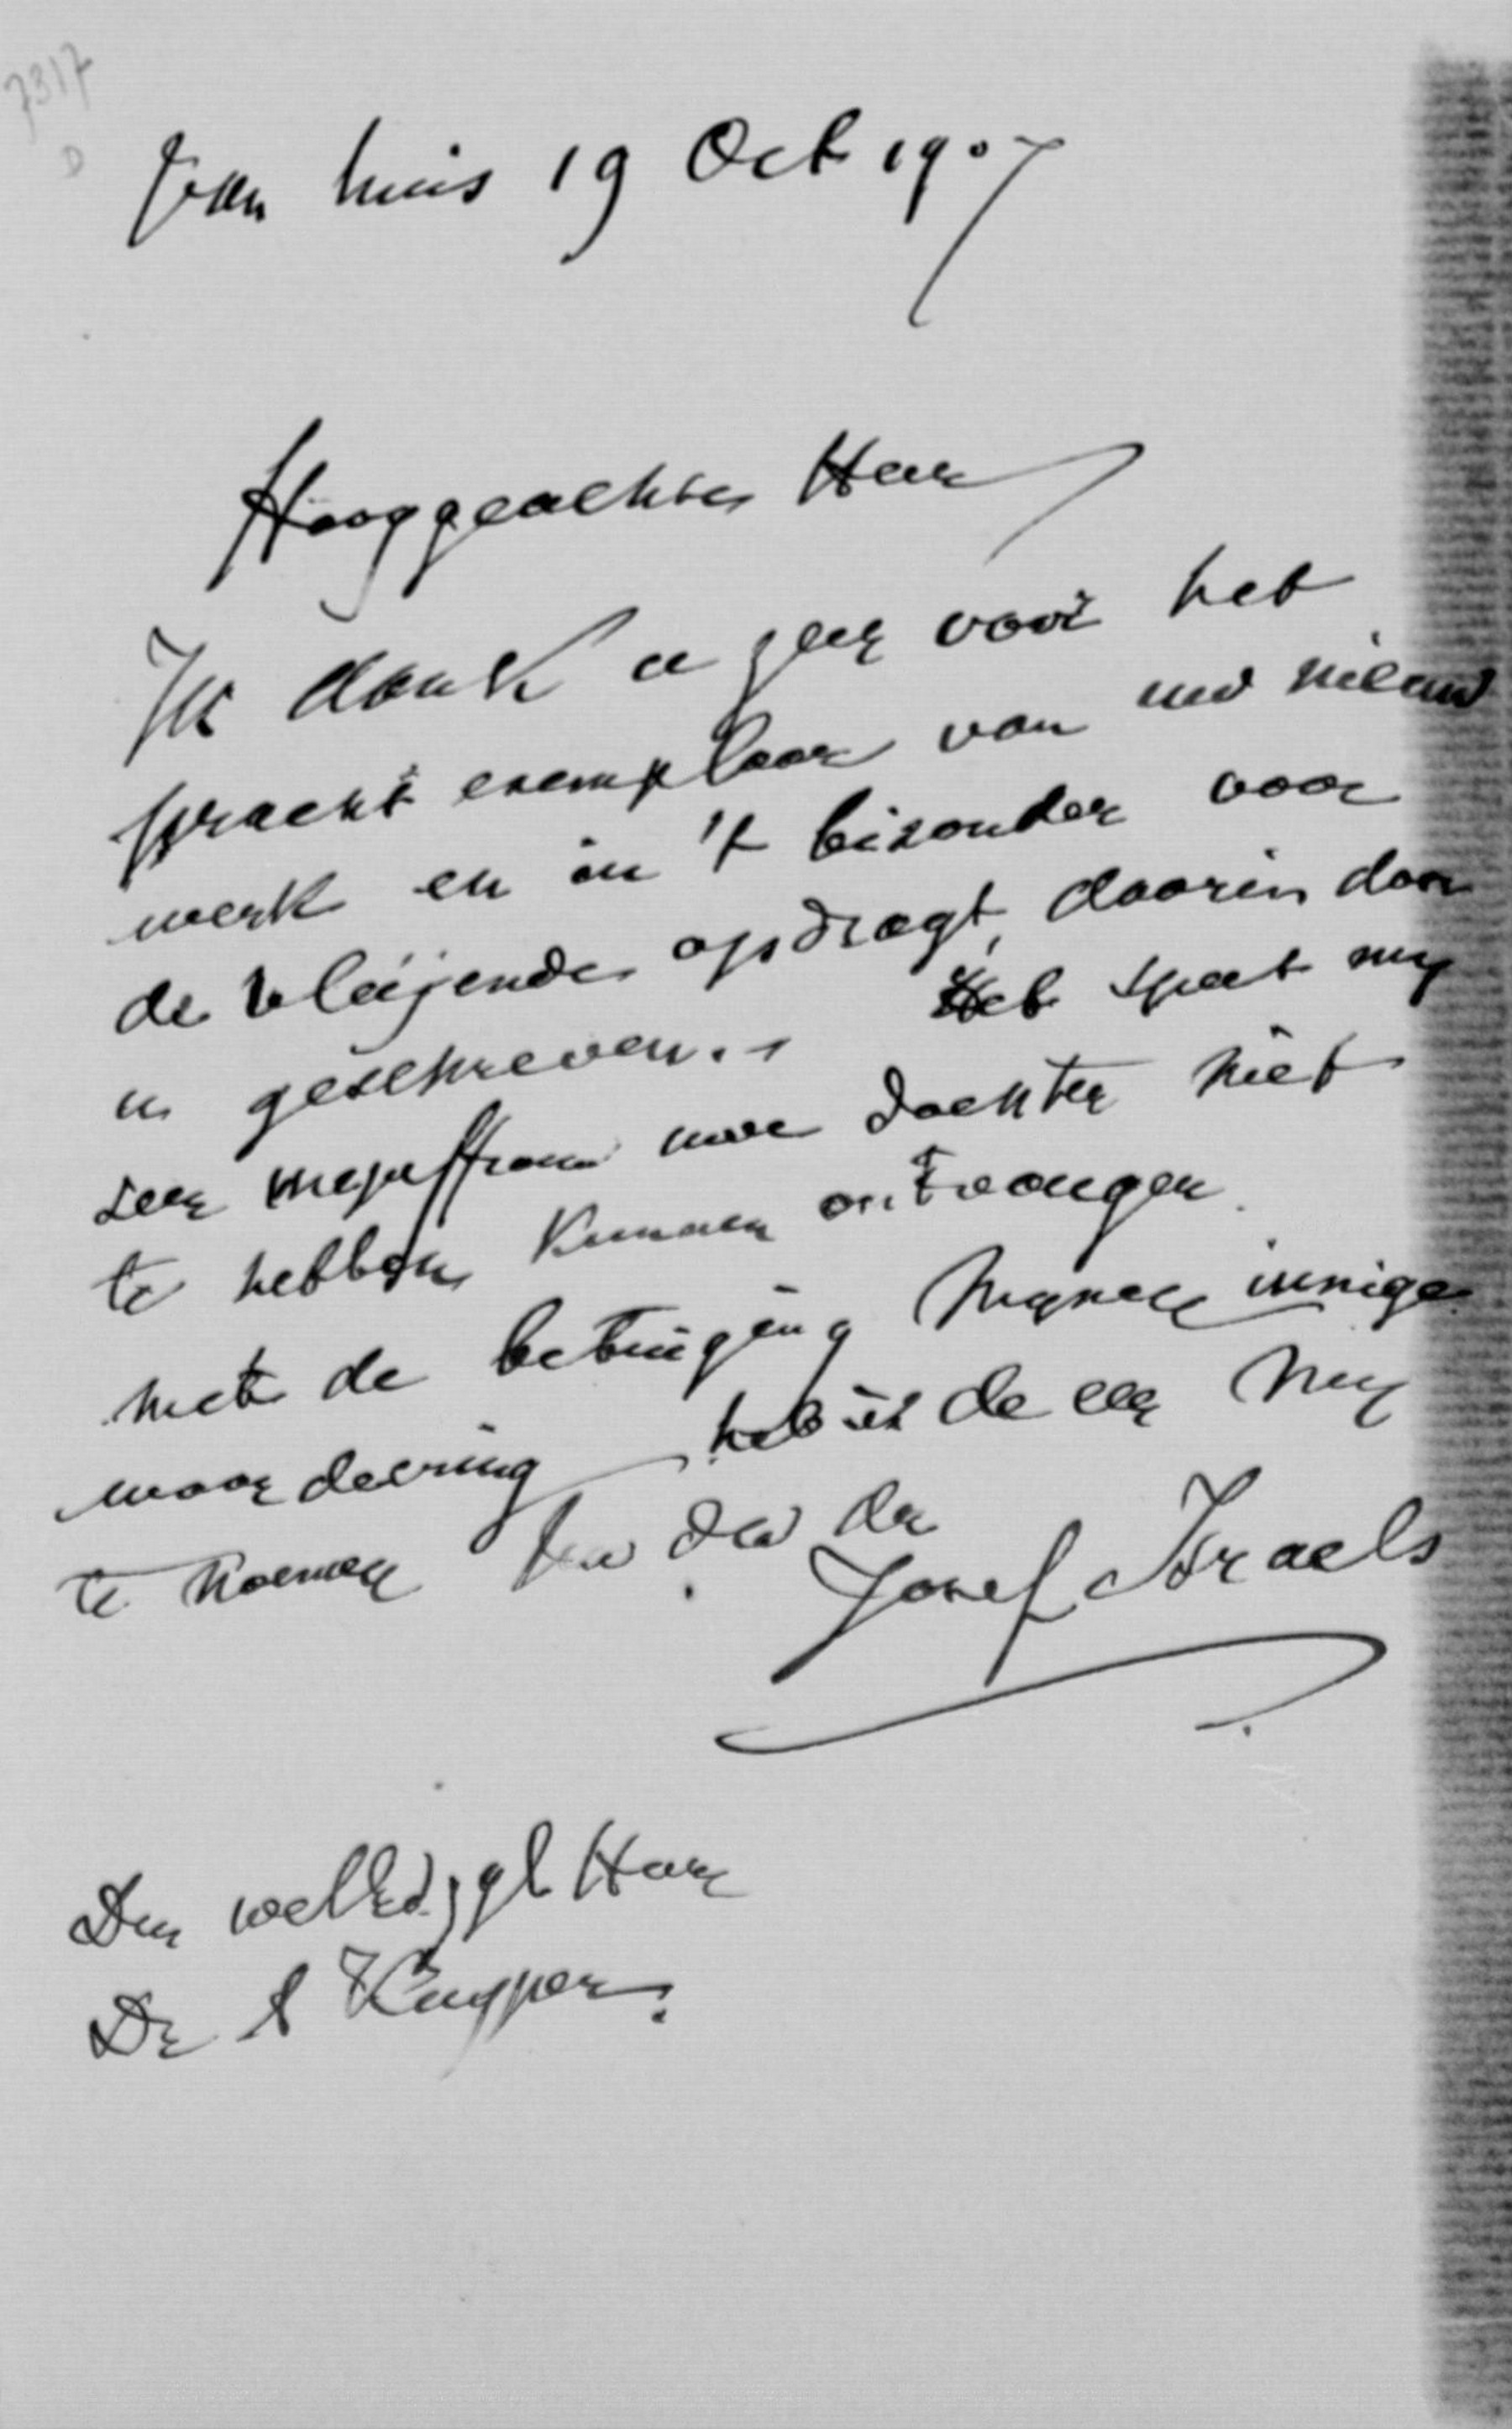 7317
D
Van huis 19 Oct 1907
Hooggeachte Heer
Ik dank u zeer voor het
pracht exemplaar van uw nieuw
werk en in 't bizonder voor
de vleijende opdragt, daarin door
u geschreven. Het speet my
zeer mejuffrouw uwe dochter niet
te hebben kunnen ontvangen.
met de betuiging mynen innige
waardeering heb ik de eer my
te noemen Uw dw dr
Jozef Israels
Den welEd. zgl Heer
Dr A Kuyper.